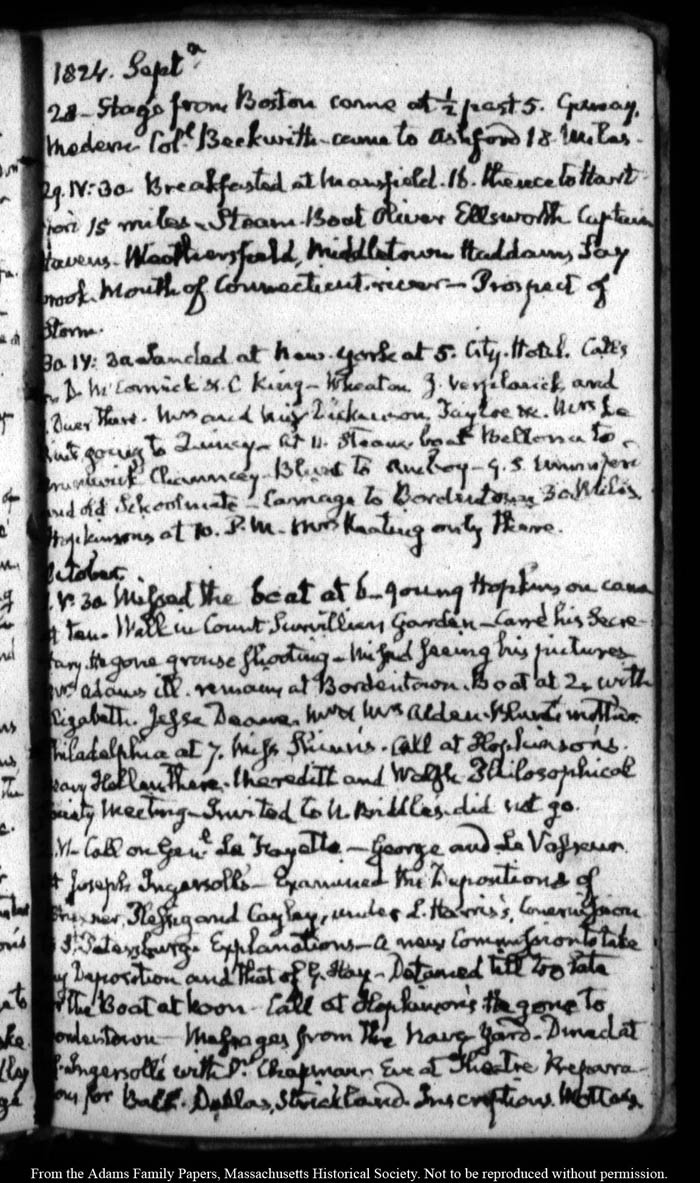 1824. Sept
28 - Stage from Boston came at ½ past 5.
Modern Colᵉ Beckwith - came to Ashford 18 Miles.
29. IV: 30 Breakfasted at Mansfield. 16. thence to Hart
ford 15 miles - Steam-Boat Oliver Ellsworth Captain
Havens. Weathersfield, Middletown Haddams Say
brook. Mouth of Connecticut. river - Prospect of
Storm.
30 IV: 30 Landed at New-York at 5. City-Hotel. Calls
D. McCormick & C King - Wheaton J. Verplanck, and
Duer there. Mrs and Miss Dickinson, Tayloe &c. Mrs Le
going to Quincy - At 11. Steam boat Bellona to
Brunswick Chauncey - Blunt to Amboy - G. S.
and old Schoolmate - Carriage to Bordentown 30 Miles
Hopkinsons at 10. P.M. Mrs Keating only there.
October.
V: 30 Missed the boat at 6 - young Hopkinson came
at ten. Walk in Count Survilliers Garden - Carré his Secre-
tary. He gone grouse shooting - Missed seeing his pictures
Mrs Adams ill. remains at Bordentown. Boat at 2. with
Elizabeth. Jesse Mr & Mrs Alden. mother.
Philadelphia at 7. Miss Call at Hopkinson's.
there. Meredith and Walsh Philosophical
Society Meeting - Invited to N. Biddles. did not go.
VI - Call on Genˡ La Fayette - George and Le Vasseur.
At Joseph Ingersoll's - Examined the Depositions of
and Cayley, under L. Harris's, Commission
St Petersburg. Explanations - a new Commission to take
my Deposition and that of G. Hay - Detained till too late
for the Boat at Noon - Call at Hopkinson's He gone to
Bordentown - Messages from the Navy Yard - Dined at
Ingersoll's with Dr Chapman Eve at Theatre Prepara-
tions for Ball. Dallas, Strickland. Inscriptions. Mottos.
From the Adams Family Papers, Massachusetts Historical Society. Not to be reproduced without permission.